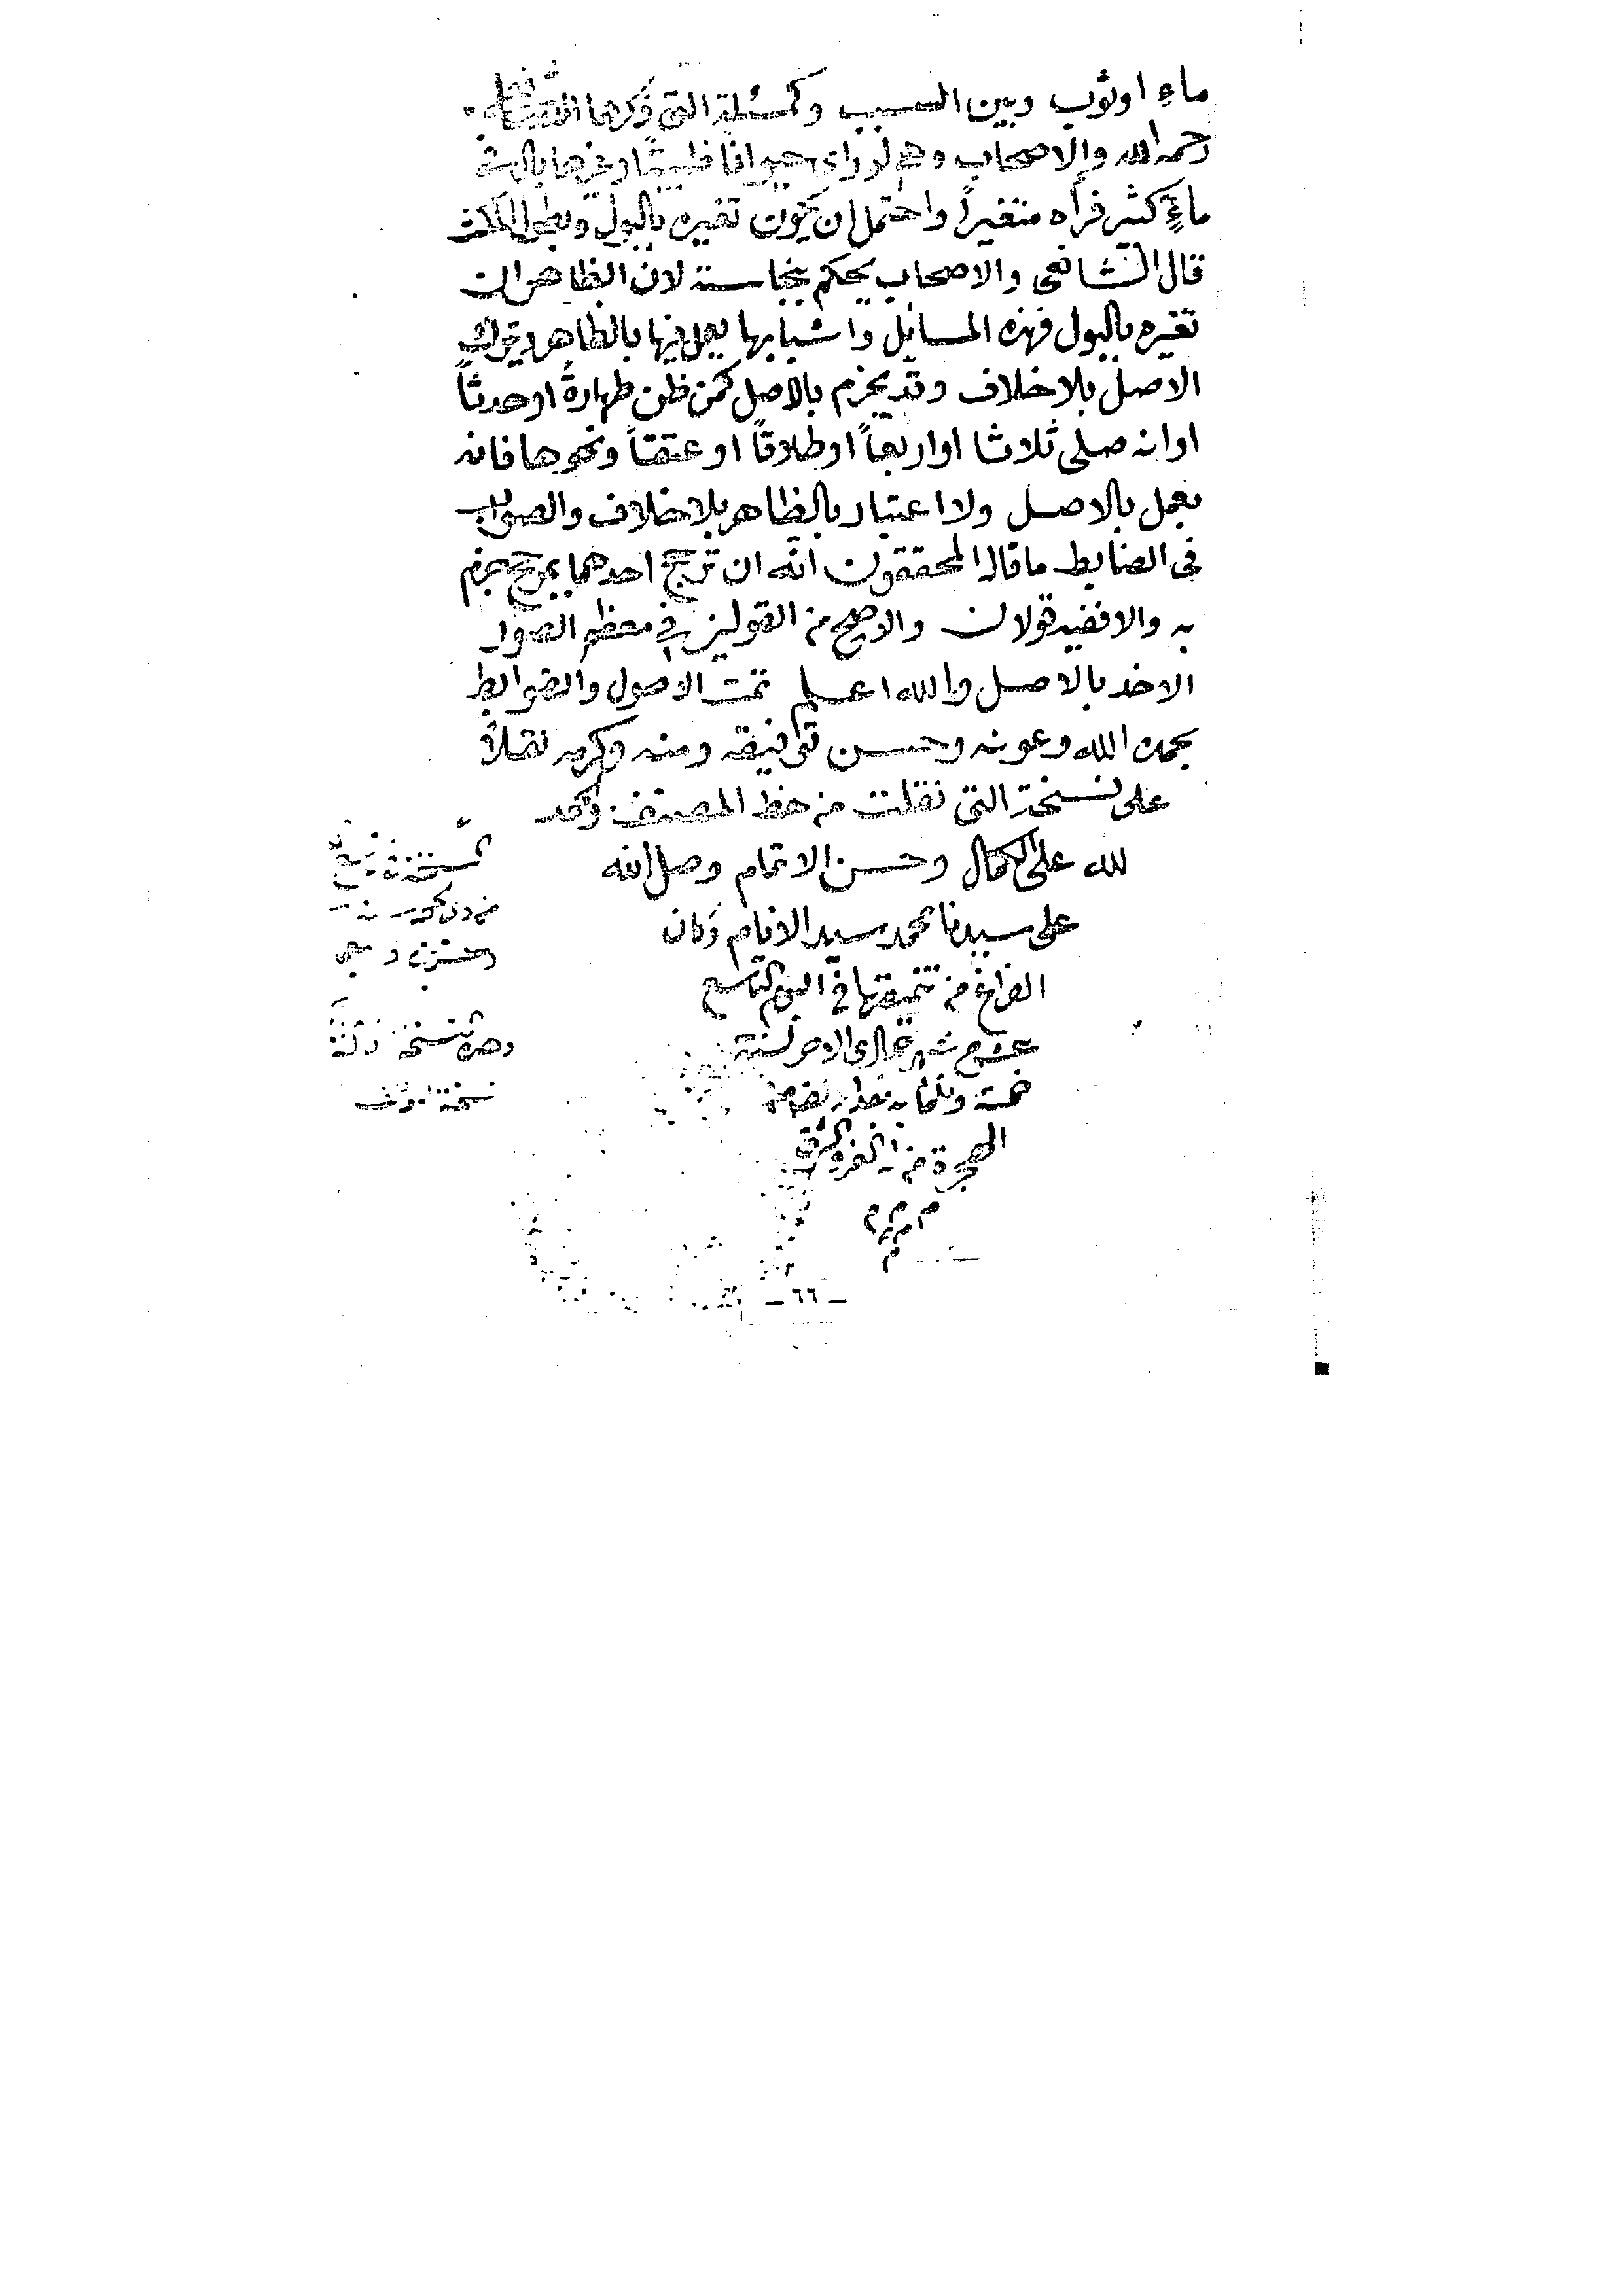 ماءٍ او ثوب وبين السبب وكمسئلة التى ذكرها الشافعى
رحمه الله والاصحاب وهى لو راى حيواناً ظبيةً او غيرها بال فى
ماءٍ كثير فرآه متغيراً واحتمل ان يكون تغيره بالبول وبطول المكث
قال الشافعى والاصحاب يحكم بنجاسته لان الظاهر ان
تغيره بالبول فهذه المسايل واشباهها يعمل فيها بالظاهر ويترك
الاصل بلا خلاف وقد يجزم بالاصل كمن ظن طهارةً او حدثاً
او انه صلى ثلاثا او اربعاً او طلاقاً او عتقاً ونحوها فانه
يعمل بالاصل ولا اعتبار بالظاهر بلا خلاف والصواب
فى الضابط ما قاله المحققون انه ان ترجح احدهما بمرجح جزم
به والا ففيه قولان والاصح من القولين فى معظم الصور
الاخذ بالاصل والله اعلم تمت الاصول والضوابط
بحمد الله وعونه وحسن توفيقه ومنه وكرمه نقلاً
على نسخة التى نقلت من خط المصنف والحمد
لله على الكمال وحسن الاتمام وصلى الله
على سيدنا محمد سيد الانام وكان
الفراغ من تنميقها فى اليوم التاسع
عشر من شهر جمادى الاخر لسنة
خمسة وثلثمايه بعد الالف من
الهجرة من له العز والشرف
م م م م م
وهذه النسخة
نسخة
- ٦٦ -